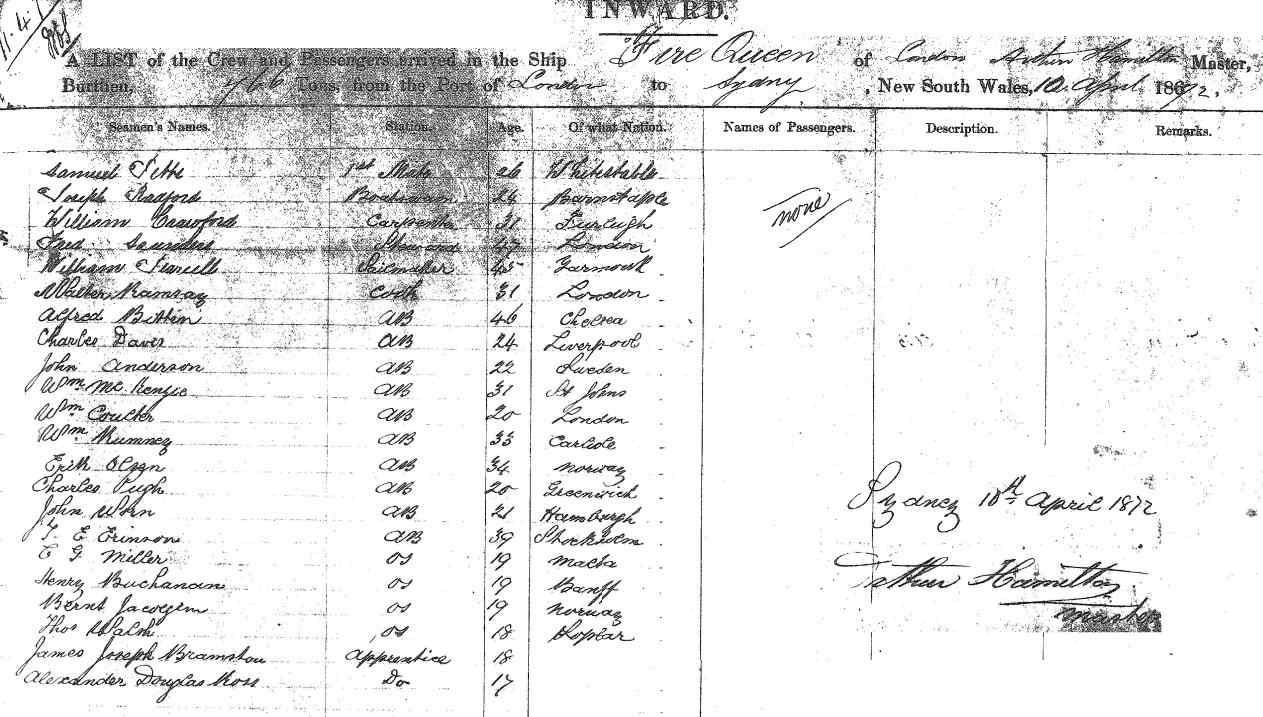 INWARD.
A LIST of the Crew and Passengers arrived in the Ship Fire Queen of London Arthur Hamilton Master,
Burthen, Tons, from the Port of London to Sydney, New South Wales, 10 April 1872.
Seamen's Names. Station. Age. Of what Nation. Names of Passengers. Description. Remarks.
Samuel 1st Mate 26 Whitestable
Joseph Radford Boatswain 28 Barnstaple
William Crawford Carpenter 31
Fred Saunders Steward 47 London
William Sailmaker 45 Yarmouth
Walter Ramsay Cook 31 London
none
Alfred AB 46 Chelsea
Charles Davis AB 24 Liverpool
John Anderson AB 22 Sweden
Wm McKenzie AB 31 St Johns
Wm Coulter AB 20 London
Wm Rumney AB 33 Carlisle
Erik Olsen AB 34 Norway
Charles Pugh AB 20 Greenwich
John AB 21 Hamburgh
Sydney 10th April 1872
E AB 39
E G Miller OS 19 Malta
Arthur Hamilton
Henry Buchanan OS 19 Banff
Bernt OS 19 Norway
master
Thos Walsh OS 18 Poplar
James Joseph Bramston Apprentice 18
Alexander Douglas Ross Do 17